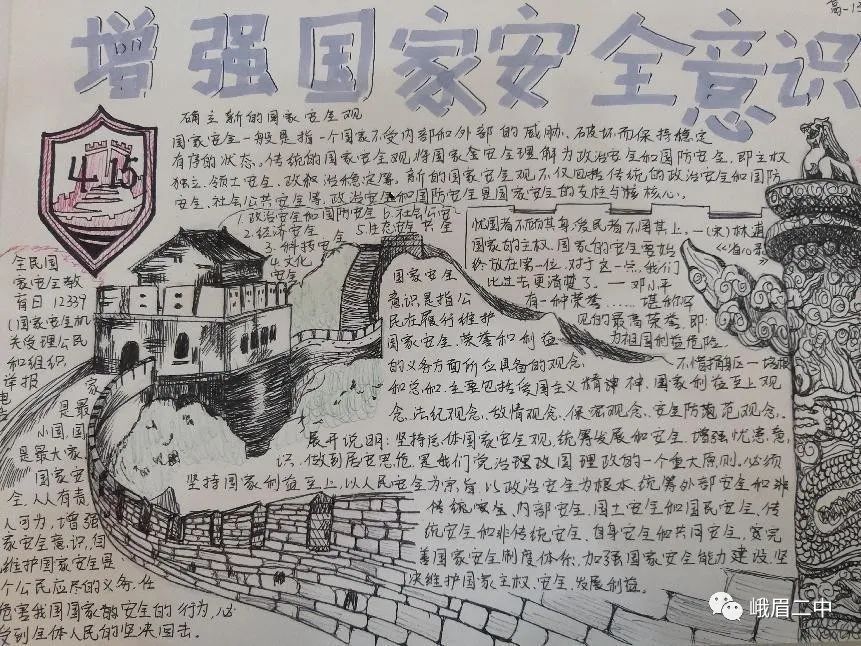 高一13
增强国家安全意识
4 15
确立新的国家安全观
国家安全一般是指一个国家不受内部和外部的威胁、破坏而保持稳定
有序的状态。传统的国家安全观,将国家安全理解为政治安全和国防安全,即主权
独立、领土安全、政治稳定等。新的国家安全观不仅包括传统的政治安全和国防
安全、社会公共安全等,政治安全和国防安全是国家安全的支柱与核心。
1.政治安全和国防安全 6.社会公共
2.经济安全 5.生态安全 安全
3.科技安全
4.文化
安全
忧国者不顾其身,爱民者不罔其上。—(宋)林逋
国家的主权、国家的安全要始 《省心录
终放在第一位,对于这一点,我们
比过去更清楚了。—邓小平
有一种荣誉……堪称罕
见的最高荣誉,即:
为祖国利益危险,
不惜捐躯
全民国
家安全教
育日 12339
(国家安全机
关受理公民
和组织
举报
电
家
是最
小国,国
是最大家
国家安
全,人人有责
人可为,增强
家安全意识,自
维护国家安全是
个公民应尽的义务,任
危害我国国家的安全的行为,必
受到全体人民的坚决回击。
国家安全
意识是指公
民在履行维护
国家安全、荣誉和利益
的义务方面所应具备的观念
和总和,主要包括爱国主义精神、国家利益至上观
念、法纪观念、敌情观念、保密观念、安全防范观念。
展开说明:坚持总体国家安全观,统筹发展和安全,增强忧患意
识,做到居安思危,是我们党治国理政的一个重大原则。必须
坚持国家利益至上,以人民安全为宗旨,以政治安全为根本,统筹外部安全和
内部安全、国土安全和国民安全、传
统安全和非传统安全、自身安全和共同安全,完
善国家安全制度体系,加强国家安全能力建设,坚
决维护国家主权、安全、发展利益。
峨眉二中